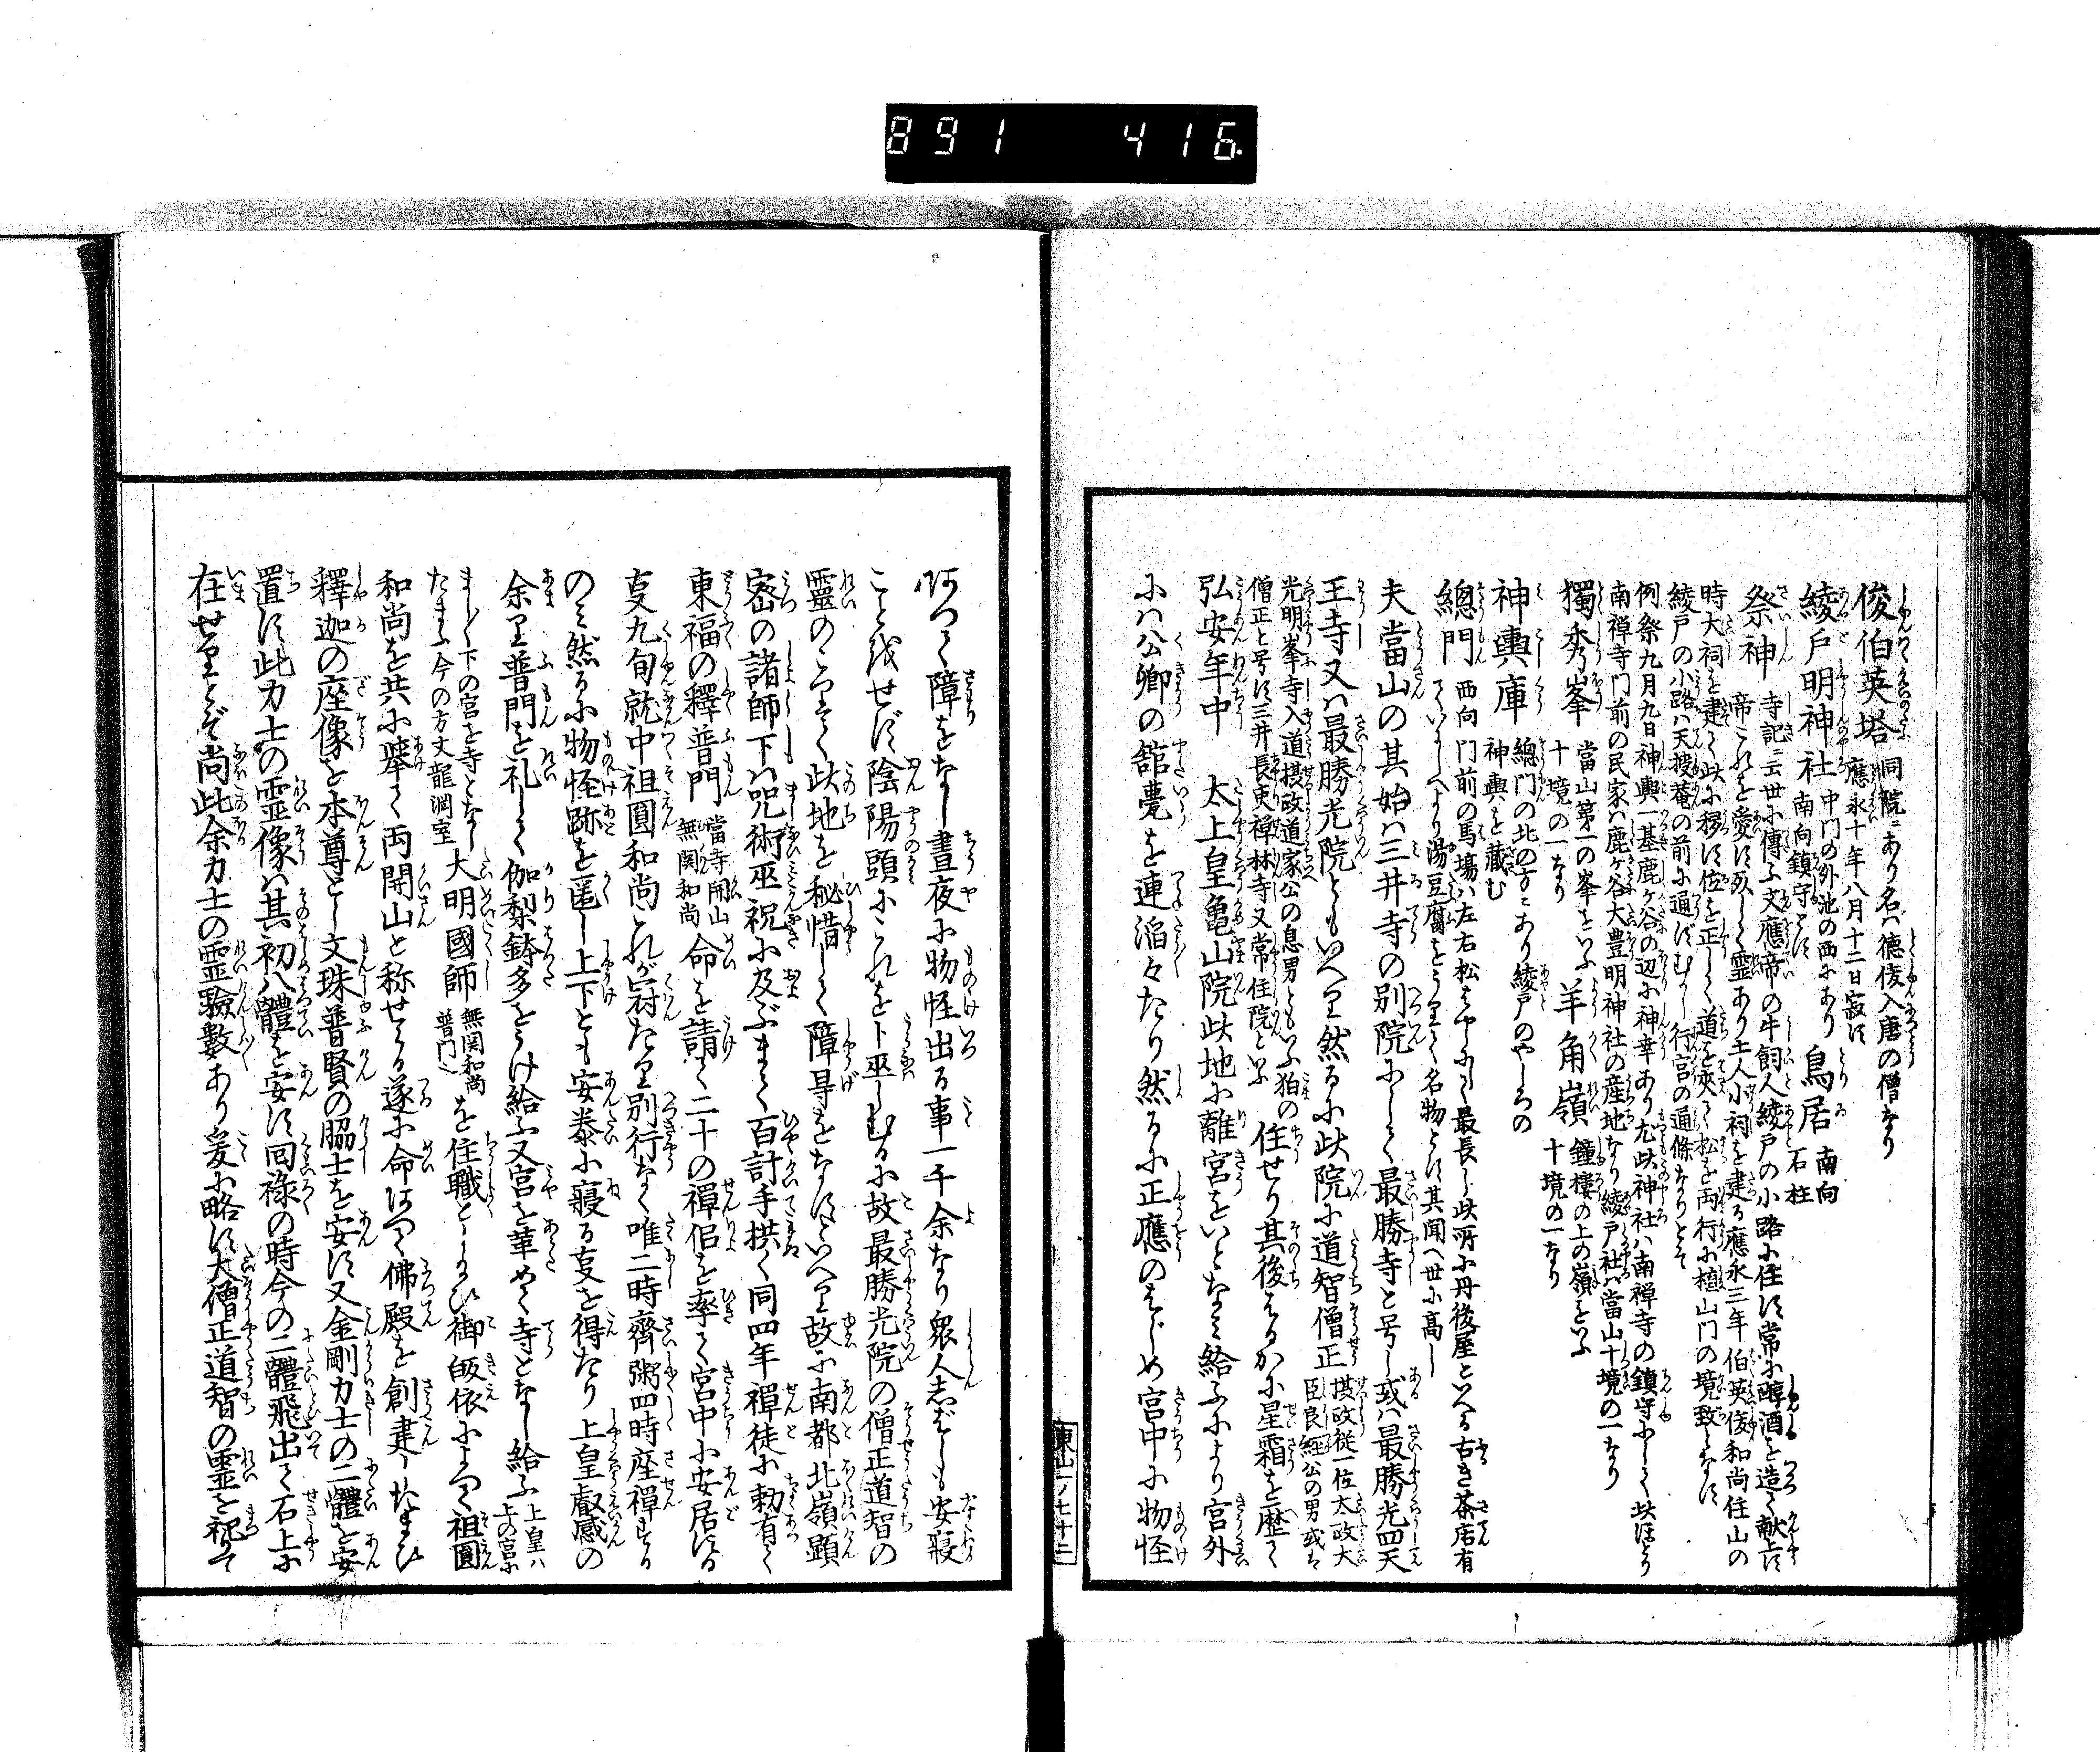 891 416
俊伯英塔 同院ニあり名ハ徳俊入唐の僧なり
應永十年八月十二日寂す
綾戸明神社 中門の外池の西にあり
南向鎮守とす 鳥居 南向
石柱
祭神 寺記ニ云世に傳ふ文應帝の牛飼人綾戸の小路に住す常に醇酒を造て献上す
帝これを愛す死して霊あり土人小祠を建る應永三年伯英俊和尚住山の
時大祠を建て此に移す位を正して道を夾て松を両行に植山門の境致となす
綾戸の小路ハ天授菴の前に通ずむかし行宮の通條なりとそ
例祭九月九日神輿一基鹿ヶ谷の辺に神幸あり尤此神社ハ南禅寺の鎮守にして此ほとり
南禅寺門前の民家ハ鹿ヶ谷大豊明神社の産地なり綾戸社ハ當山十境の一なり
獨秀峯 當山第一の峯をいふ
十境の一なり 羊角嶺 鐘楼の上の嶺をいふ
十境の一なり
神輿庫 總門の北の方ニあり綾戸のやしろの
神輿を蔵む
總門 西向 門前の馬場ハ左右松はやしにて最長し此所に丹後屋といへる古き茶店有
ていにしへより湯豆腐をうりて名物とす其聞へ世に高し
夫當山の其始ハ三井寺の別院にして最勝寺と号し或ハ最勝光四天
王寺又ハ最勝光院ともいへり然るに此院に道智僧正 摂政従一位太政大
臣良経公の男或は
光明峯寺入道摂政道家公の息男ともいふ狛の
僧正と号す三井長吏禅林寺又常住院といふ 住せり其後はるかに星霜を歴て
弘安年中 太上皇亀山院此地に離宮をいとなみ給ふにより宮外
にハ公卿の舘甍を連滔々たり然るに正應のはじめ宮中に物怪
東山一ノ七十二
阿つて障をなし晝夜に物怪出る事一千余なり衆人志ばしも安寝
こと越せず陰陽頭にこれを卜巫しむるに故最勝光院の僧正道智の
靈のこりて此地を秘惜して障㝵をなすといへり故に南都北嶺顕
密の諸師下ハ咒術巫祝に及ぶまて百計手拱く同四年禪徒に勅有て
東福の釋普門 當寺開山
無関和尚 命を請て二十の禪侶を率て宮中に安居する
叓九旬就中祖圓和尚これが対たり別行なく唯二時齊粥四時座禪する
のミ然るに物怪跡を匿し上下とも安泰に寝る叓を得たり上皇叡感の
余り普門を礼して伽梨鉢多をうけ給ふ又宮を革めて寺となし給ふ 上皇ハ
上の宮に
まし〳〵下の宮を寺となし
たまふ今の方丈龍渕室 大明國師 無関和尚
普門也 を住職としたまひ御皈依によつて祖圓
和尚を共に挙て両開山と称せらる遂に命阿つて佛殿を創建したまひ
釋迦の座像を本尊とし文珠普賢の脇士を安す又金剛力士の二體を安
置す此力士の霊像ハ其初八體を安す回祿の時今の二體飛出て石上に
在せりとぞ尚此余力士の霊驗數々あり爰に略す大僧正道智の霊を祀りて